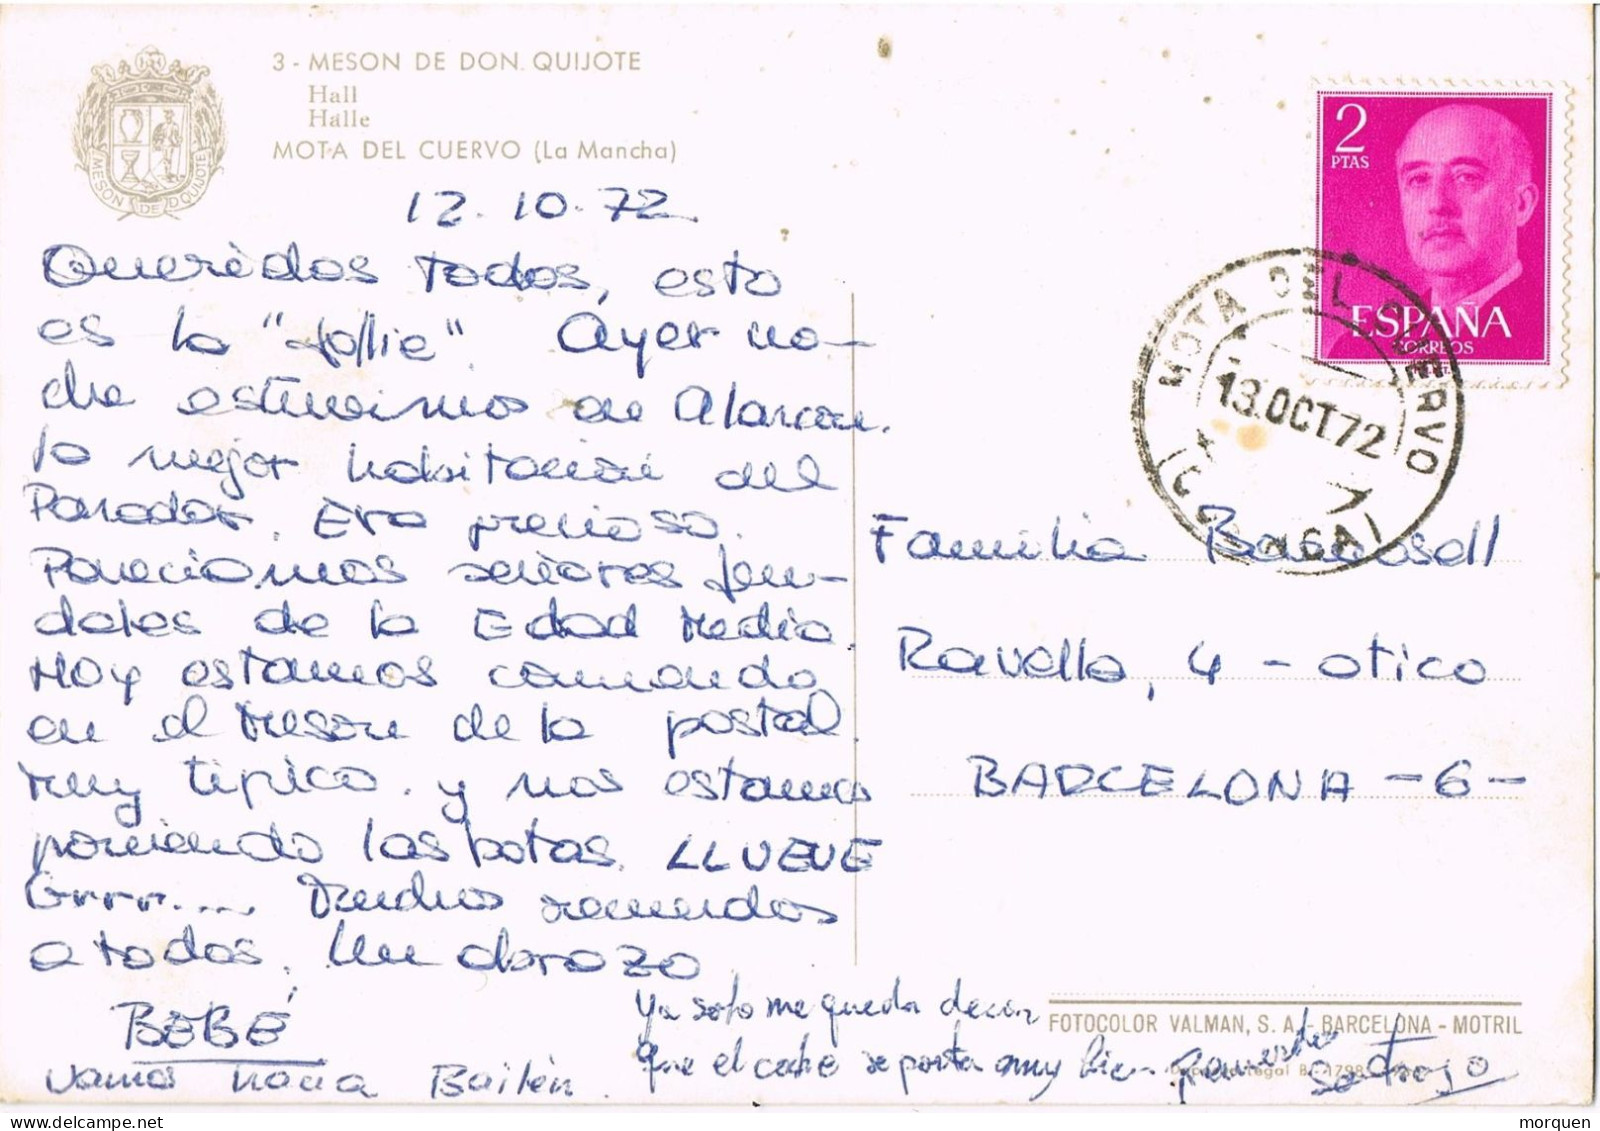 3 - MESON DE DON QUIJOTE
Hall
Halle
MOTA DEL CUERVO (La Mancha)
MESON DE D QUIJOTE
2
PTAS
ESPAÑA
CORREOS
MOTA DEL CUERVO
13.OCT72
12.10.72
Queridos todos, esto
es la "follie". Ayer no-
che estuvimos en Alarcon.
la mejor habitación del
Parador. Era precioso.
Pareciamos señores feu-
dales de la Edad Media.
Hoy estamos comiendo
en el Meson de la postal.
Muy tipico. y nos estamos
poniendo las botas. LLUEVE
Grrr.... Muchos recuerdos
a todos. Un abrazo
BEBÉ
Vamos hacia Bailén.
Ya solo me queda decir
que el coche se porta muy bien
Familia
Ravella, 4 - atico
BARCELONA - 6 -
FOTOCOLOR VALMAN, S. A. - BARCELONA - MOTRIL
Legal B. 1798
morquen